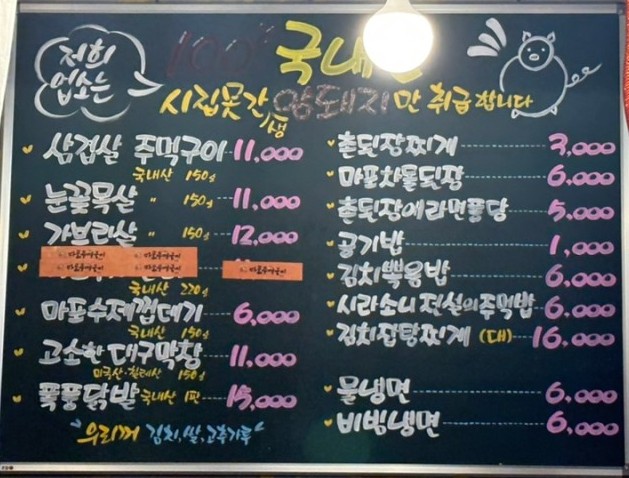 저희
업소는
100% 국내산
시집못간 암퇘지만 취급합니다
생
삼겹살 주먹구이 11,000
국내산 150g
눈꽃목살 〃 150g 11,000
가브리살 〃 150g 12,000
국내산 220g
마포수제껍데기 6,000
국내산 150g
고소한 대구막창 11,000
미국산·칠레산 150g
폭풍닭발 국내산 1판 15,000
"우리꺼 김치,쌀,고추가루"
촌된장찌개 3,000
마포차돌된장 6,000
촌된장에라면퐁당 5,000
공기밥 1,000
김치뽂음밥 6,000
시라소니 전설의주먹밥 6,000
김치잡탕찌개 (대) 16,000
물냉면 6,000
비빔냉면 6,000